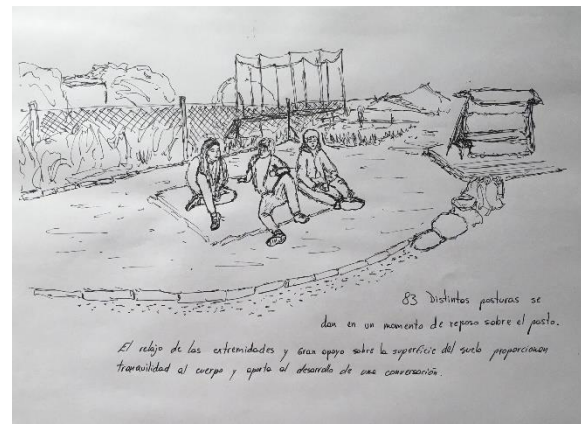 83 Distintas posturas se
dan en un momento de reposo sobre el pasto.
El relajo de las extremidades y gran apoyo sobre la superficie del suelo proporcionan
tranquilidad al cuerpo y aporta al desarrollo de una conversación.